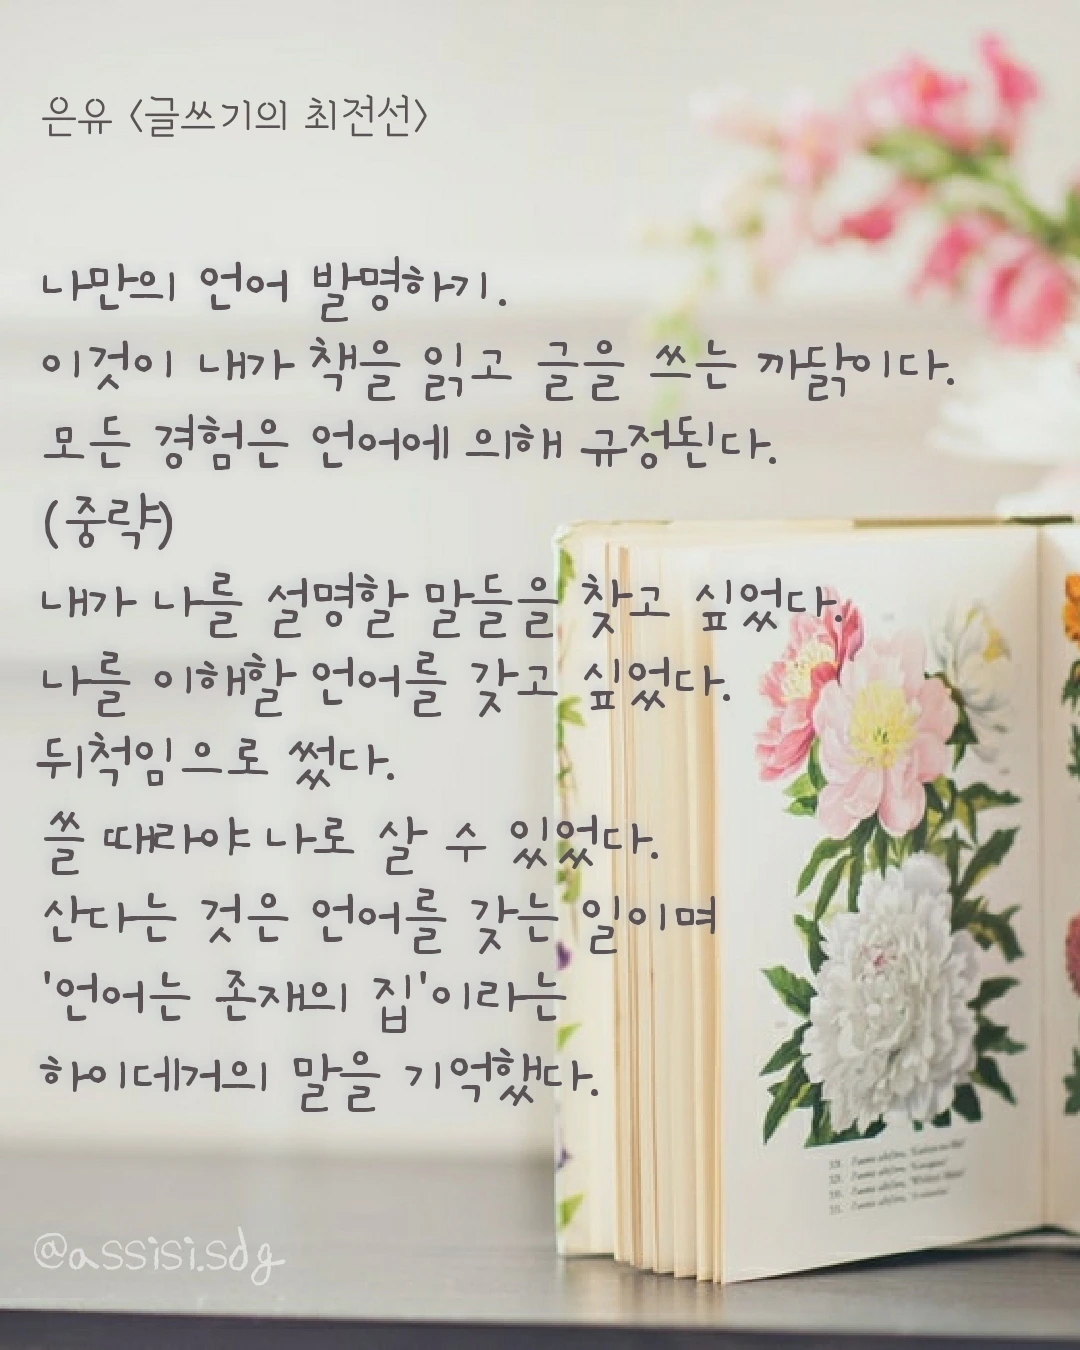 은유 <글쓰기의 최전선>
나만의 언어 발명하기.
이것이 내가 책을 읽고 글을 쓰는 까닭이다.
모든 경험은 언어에 의해 규정된다.
(중략)
내가 나를 설명할 말들을 찾고 싶었다.
나를 이해할 언어를 갖고 싶었다.
뒤척임으로 썼다.
쓸 때라야 나로 살 수 있었다.
산다는 것은 언어를 갖는 일이며
'언어는 존재의 집'이라는
하이데거의 말을 기억했다.
@assisi.sdg